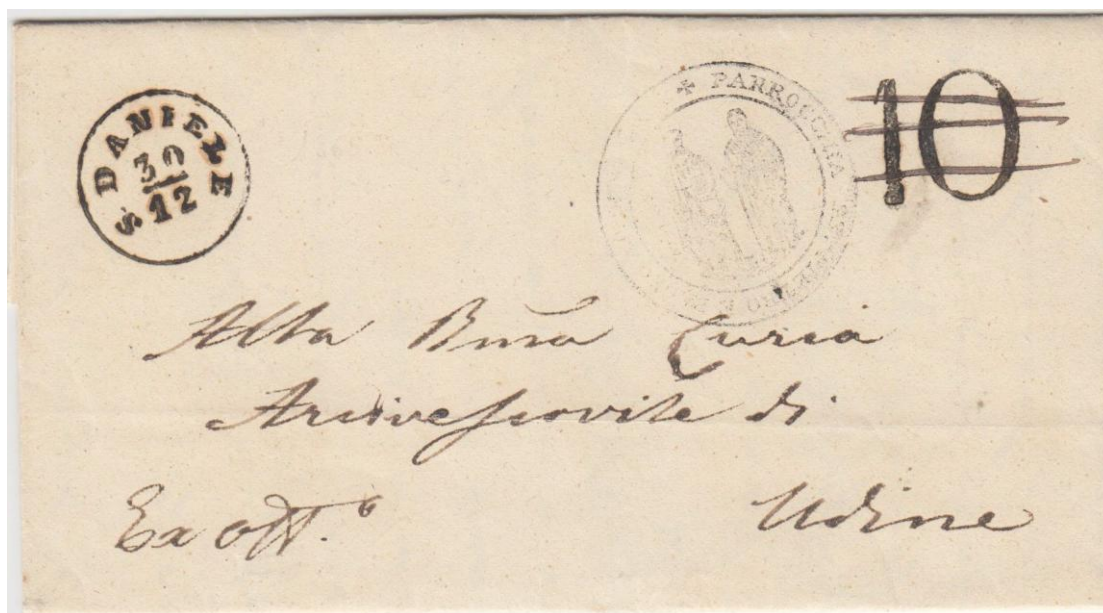 S. DANIELE
30
12
✠ PARROCCHIA SS. PIETRO E
10
Alla Rma Curia
Arcivescovile di
Udine
Ex offo.